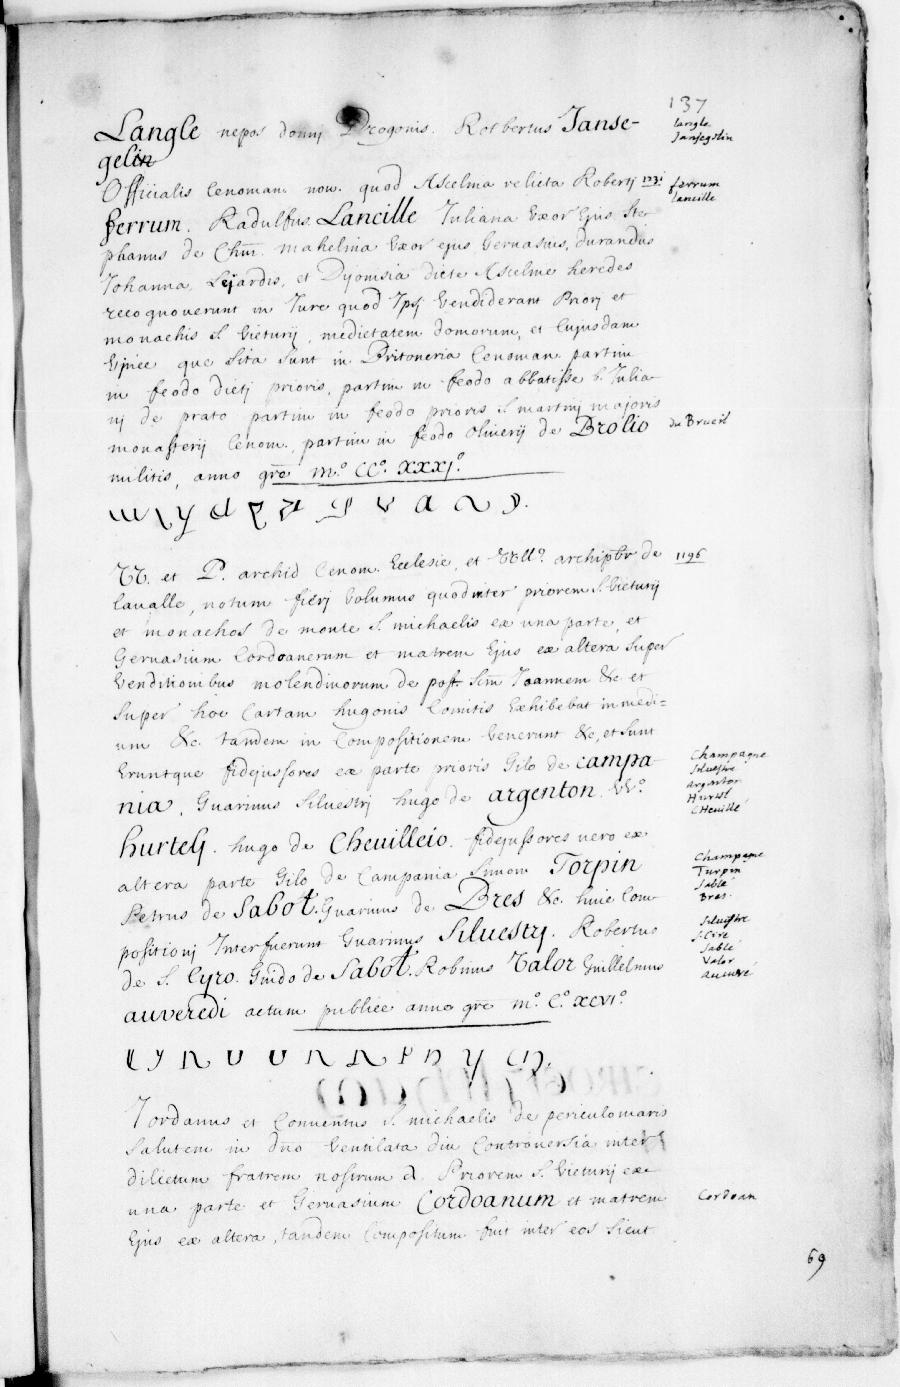 137
Langle nepos domnj Drogonis. Rotbertus Janse-
gelin
langle
Jansegelin
Officialis Cenoman. nov. quod Ascelina relicta Robertj
1231
ferrum
lancille
ferrum. Radulfus Lancille Juliana Vxor Ejus Ste-
phanus de Chuī. mahelina Vxor ejus Gervasius, durandus
Johanna, Lejardis, et Dyonisia dicte Asceline heredes
recognoverunt in Jure quod Jpsj Vendiderant Priorj et
monachis S. Victurij, medietatem domorum, et Cujusdam
Vinee que Sita Sunt in Britoneria Cenoman. partim
in feodo dictj prioris, partim in feodo abbatisse b. Julia-
nj de prato partim in feodo prioris S. martinj majoris
monasterij Cenom. partim in feodo Oliverij de Brolio
du Brueil
militis, anno grē m.º CCº. XXXIº.
W. et P. archid Cenom. Ecclesie, et Willº. archipbr de
1196
lavalle, notum fierj Volumus quod inter priorem S. Victurij
et monachos de monte S. michaelis ex una parte, et
Gervasium Cordoanerum et matrem Ejus ex altera Super
Venditionibus molendinorum de post Scm Joannem &c et
Super hoc Cartam hugonis Comitis Exhibebat in medi=
um &c. tandem in Compositionem Venerunt &c, et Sunt
Eruntque fidejussores ex parte prioris Gilo de campa
nia, Guarinus Silvestrj hugo de argenton. Wº.
Champagne
Silvestre
argenton
Hurtel
Cheuillé
hurtelj. hugo de Chevilleio. fidejussores vero ex
altera parte Gilo de Campania Simon Torpin
Champagne
Turpin
Sablé
Bres.
Petrus de Sabot. Guarinus de Bres &c. huic Com-
positionj Interfuerunt Guarinus Silvestrj. Robertus
Siluestre
S. Cire
Sablé
Valor
auuré
de S. Cyro. Guido de Sabot. Robinus Valor Guillelmus
auveredi actum publice anno grē mº. Cº. XCVIº.
Jordanus et Conventus S. michaelis de periculo maris
Salutem in dno Ventilata diu Controversia inter
dilectum fratrem nostrum A. Priorem S. Victurij ex
una parte et Gervasium Cordoanum et matrem
Cordoan
Ejus ex altera, tandem Compositum fuit inter eos Sicut
69